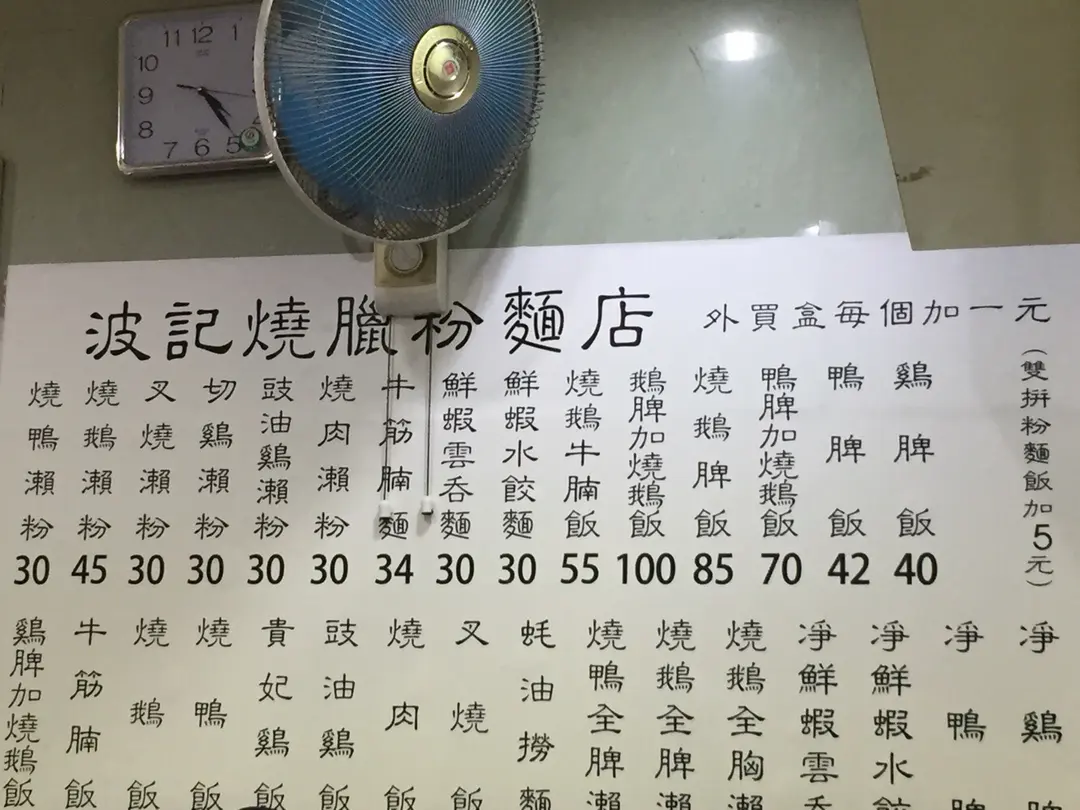 11 12 1
10
9
8
7 6 5
波記燒臘粉麵店
外買盒每個加一元
(雙拼粉麵飯加5元)
燒鴨瀨粉 30
燒鵝瀨粉 45
叉燒瀨粉 30
切鷄瀨粉 30
豉油鷄瀨粉 30
燒肉瀨粉 30
牛筋腩麵 34
鮮蝦雲呑麵 30
鮮蝦水餃麵 30
燒鵝牛腩飯 55
鵝脾加燒鵝飯 100
燒鵝脾飯 85
鴨脾加燒鵝飯 70
鴨脾飯 42
鷄脾飯 40
鷄脾加燒鵝飯
牛筋腩飯
燒鵝飯
燒鴨飯
貴妃鷄飯
豉油鷄飯
燒肉飯
叉燒飯
蚝油撈麵
燒鴨全脾瀨
燒鵝全脾瀨
燒鵝全胸瀨
凈鮮蝦雲呑
凈鮮蝦水餃
凈鴨脾
凈鷄脾